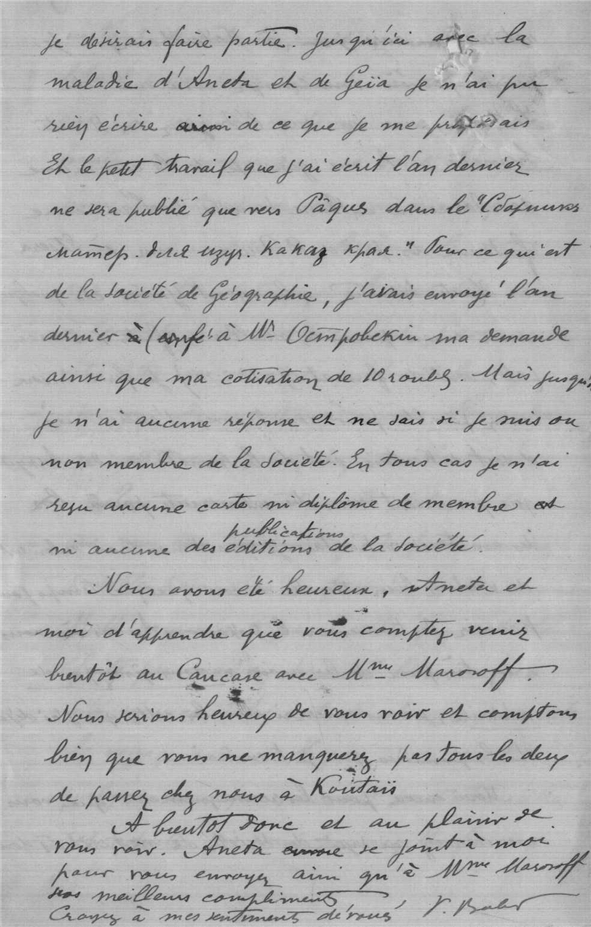 je désirais faire partie. Jusqu'ici avec la
maladie d'Aneta et de Geïa je n'ai pu
rien écrire de ce que je me proposais
Et le petit travail que j'ai écrit l'an dernier
ne sera publié que vers Pâques dans le "Сборникъ
матер. для изуч. Кавказ края." Pour ce qui est
de la Société de Géographie, j'avais envoyé l'an
dernier à Mr ma demande
ainsi que ma cotisation de 10 roubles. Mais jusqu'ici
je n'ai aucune réponse et ne sais si je suis ou
non membre de la Société. En tous cas je n'ai
reçu aucune carte ni diplôme de membre et
publications
ni aucune des éditions de la Société.
Nous avons été heureux, Aneta et
moi d'apprendre que vous comptez venir
bientôt au Caucase avec Mme Marosoff.
Nous serions heureux de vous voir et comptons
bien que vous ne manquerez pas tous les deux
de passer chez nous à Koutaïs
A bientôt donc et au plaisir de
vous voir. Aneta se joint à moi
pour vous envoyer ainsi qu'à Mme Marosoff
nos meilleurs compliments
Croyez à mes sentiments dévoués V.